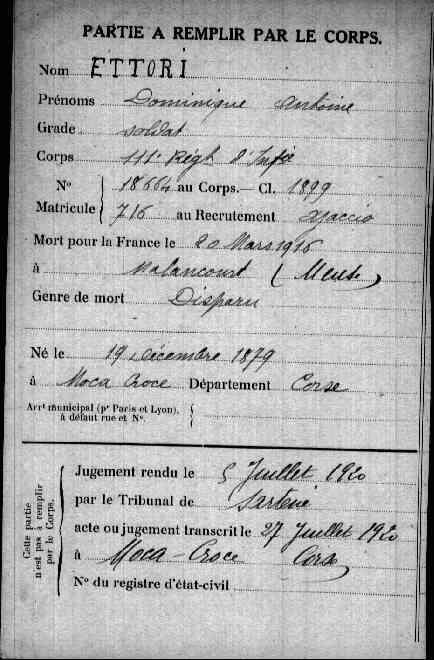 PARTIE A REMPLIR PAR LE CORPS.
Nom ETTORI
Prénoms Dominique Antoine
Grade soldat
Corps 111e Régt D'Infie
N° 18664 au Corps. — Cl. 1899
Matricule 716 au Recrutement Ajaccio
Mort pour la France le 20 Mars 1916
à Malancourt (Meuse)
Genre de mort Disparu
Né le 19 décembre 1879
à Moca Croce Département Corse
Arrt municipal (pr Paris et Lyon),
à défaut rue et N°.
Cette partie
n'est pas à remplir
par le Corps.
Jugement rendu le 5 Juillet 1920
par le Tribunal de Sartène
acte ou jugement transcrit le 27 Juillet 1920
à Moca-Croce Corse
N° du registre d'état-civil